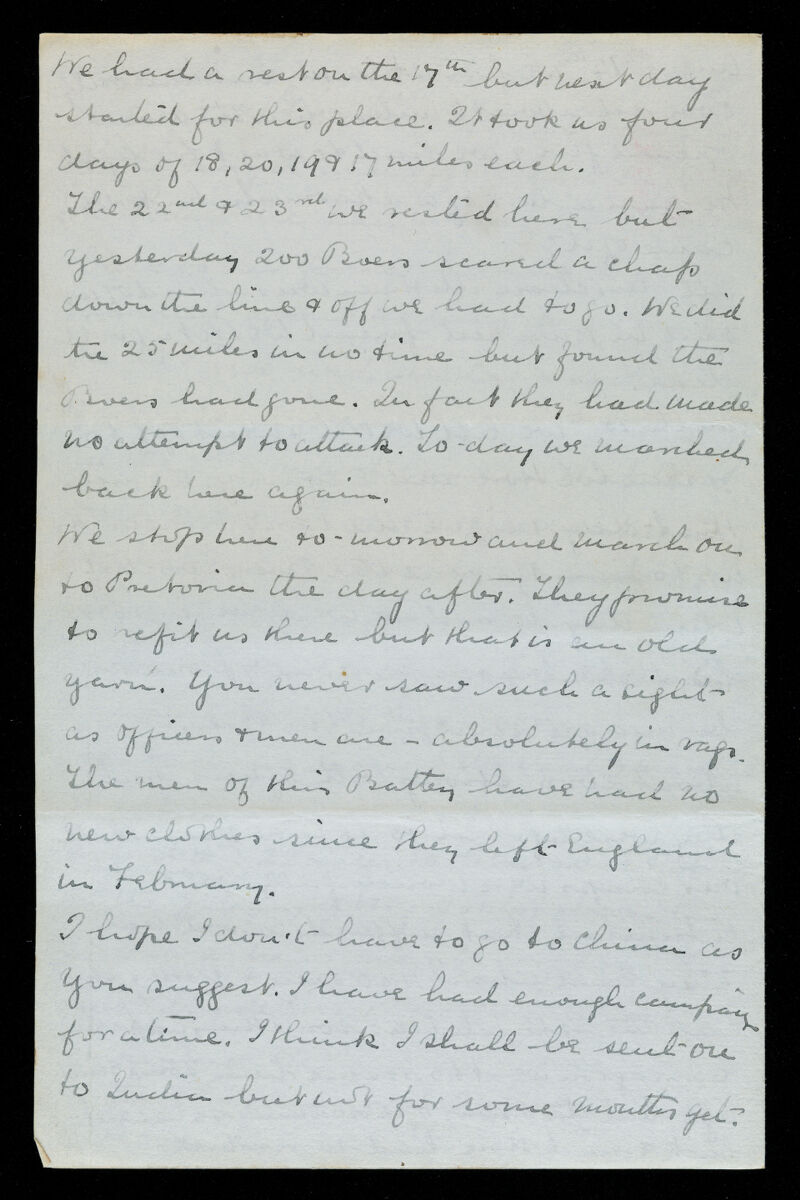 We had a rest on the 17th but next day
started for this place. It took us four
days of 18, 20, 19 & 17 miles each.
The 22nd & 23rd we rested here but
yesterday 200 Boers scared a chap
down the line & off we had to go. We did
the 25 miles in no time but found the
Boers had gone. In fact they had made
no attempt to attack. To-day we marched
back here again.
We stop here to-morrow and march on
to Pretoria the day after. They promise
to refit us there but that is an old
yarn. You never saw such a sight
as officers & men are - absolutely in rags.
The men of this Battey have had no
new clothes since they left England
in February.
I hope I don't have to go to China as
you suggest. I have had enough campaig
for a time. I think I shall be sent on
to India but not for some months yet.